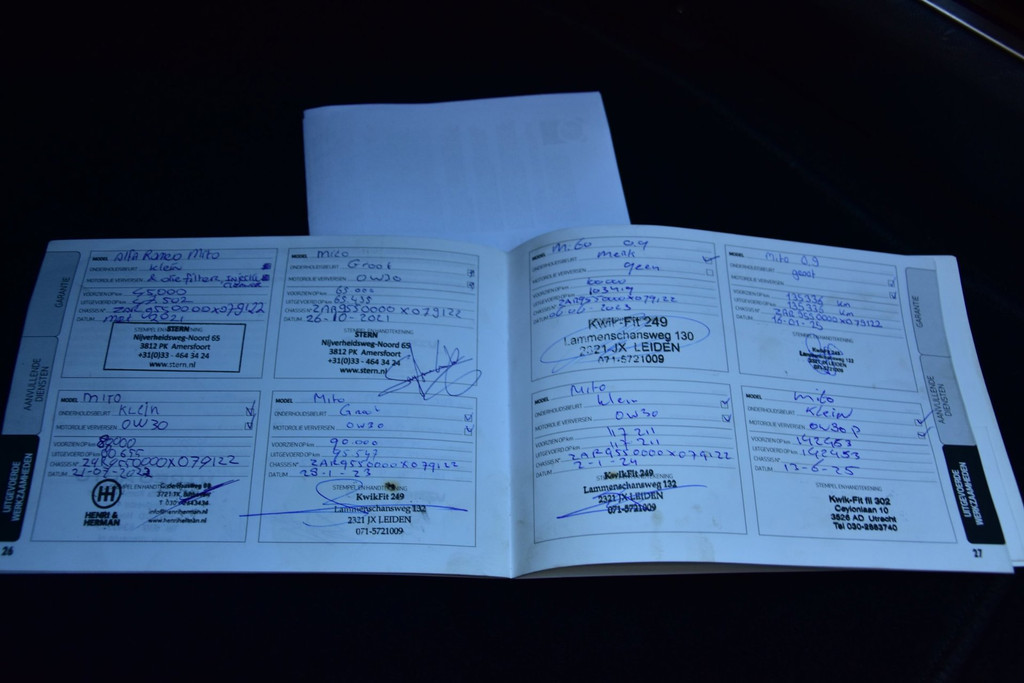 GARANTIE
AANVULLENDE
DIENSTEN
UITGEVOERDE
WERKZAAMHEDEN
26
MODEL Alfa Romeo Mito
ONDERHOUDSBEURT Klein
MOTOROLIE VERVERSEN
VOORZIEN OP km 45.000
UITGEVOERD OP km
CHASSIS Nº ZAR9550000X079122
DATUM mei 2021
STEMPEL EN HANDTEKENING
STERN
Nijverheidsweg-Noord 65
3812 PK Amersfoort
+31(0)33 - 464 34 24
www.stern.nl
MODEL Mito
ONDERHOUDSBEURT Groot
MOTOROLIE VERVERSEN 0W30
VOORZIEN OP km 65 000
UITGEVOERD OP km 65 438
CHASSIS Nº ZAR9550000X079122
DATUM 26-10-2021
STEMPEL EN HANDTEKENING
STERN
Nijverheidsweg-Noord 65
3812 PK Amersfoort
+31(0)33 - 464 34 24
www.stern.nl
MODEL Mito
ONDERHOUDSBEURT Klein
MOTOROLIE VERVERSEN 0W30
VOORZIEN OP km
UITGEVOERD OP km 80 655
CHASSIS Nº ZAR9550000X079122
DATUM
STEMPEL EN HANDTEKENING
HENRI &
HERMAN
MODEL Mito
ONDERHOUDSBEURT Groot
MOTOROLIE VERVERSEN 0W30
VOORZIEN OP km 90.000
UITGEVOERD OP km 95 547
CHASSIS Nº ZAR9550000X079122
DATUM 23-1-23
STEMPEL EN HANDTEKENING
KwikFit 249
Lammenschansweg 132
2321 JX LEIDEN
071-5721009
MODEL Mito 0.9
ONDERHOUDSBEURT
MOTOROLIE VERVERSEN geen
VOORZIEN OP km
UITGEVOERD OP km 103419
CHASSIS Nº ZAR9550000X079122
DATUM
Kwik-Fit 249
Lammenschansweg 130
2321 JX LEIDEN
071-5721009
MODEL Mito 0.9
ONDERHOUDSBEURT groot
MOTOROLIE VERVERSEN
VOORZIEN OP km 135336 km
UITGEVOERD OP km 135336 km
CHASSIS Nº ZAR9550000X079122
DATUM
MODEL Mito
ONDERHOUDSBEURT Klein
MOTOROLIE VERVERSEN 0W30
VOORZIEN OP km 117 211
UITGEVOERD OP km 117 211
CHASSIS Nº ZAR9550000X079122
DATUM 2-1-24
KwikFit 249
Lammenschansweg 132
2321 JX LEIDEN
071-5721009
MODEL Mito
ONDERHOUDSBEURT Klein
MOTOROLIE VERVERSEN 0W30
VOORZIEN OP km 142453
UITGEVOERD OP km 142453
CHASSIS Nº
DATUM 13-6-25
STEMPEL EN HANDTEKENING
Kwik-Fit fil 302
Ceylonlaan 10
3526 AD Utrecht
GARANTIE
AANVULLENDE
DIENSTEN
UITGEVOERDE
WERKZAAMHEDEN
27